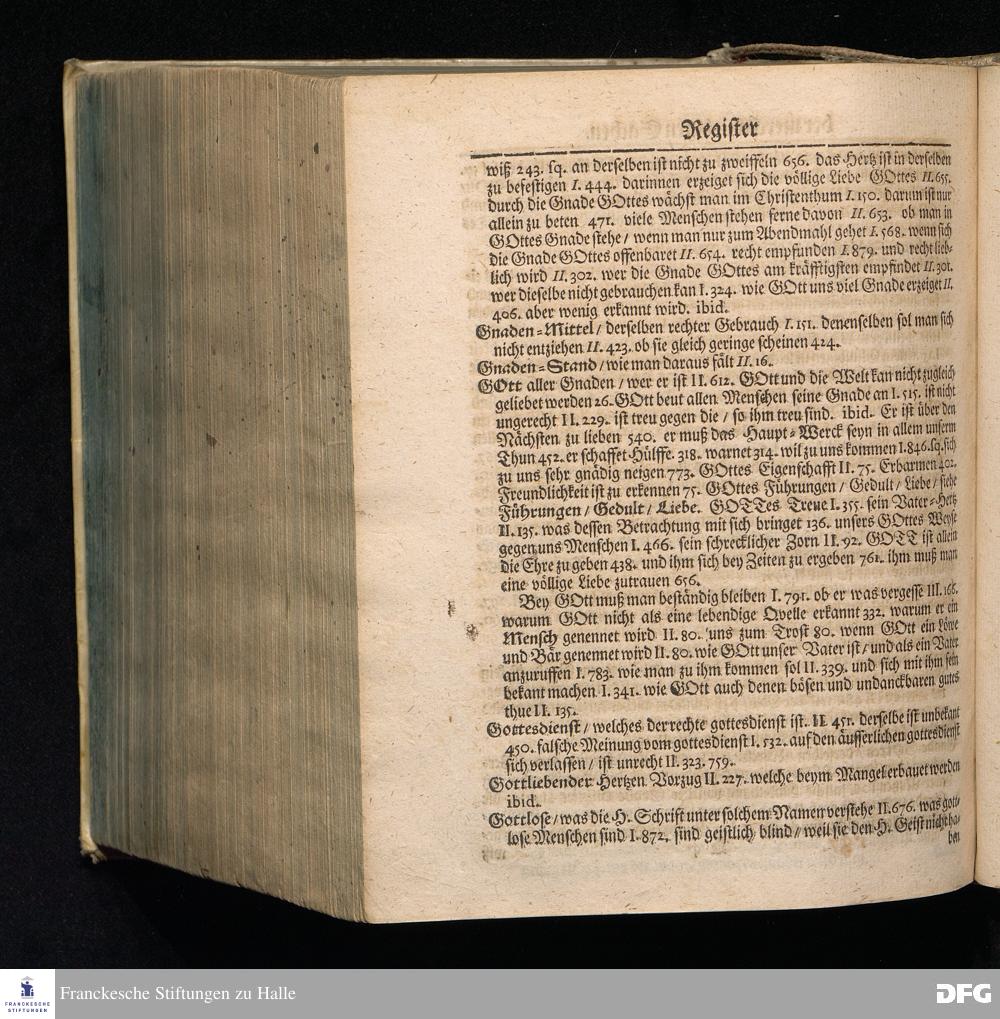 Register
wiß 243. sq. an derselben ist nicht zu zweiffeln 656. das Hertz ist in derselben
zu befestigen I. 444. darinnen erzeiget sich die völlige Liebe GOttes II. 655.
durch die Gnade GOttes wächst man im Christenthum I. 150. darum ist nur
allein zu beten 471. viele Menschen stehen ferne davon II. 653. ob man in
GOttes Gnade stehe / wenn man nur zum Abendmahl gehet I. 568. wenn sich
die Gnade GOttes offenbaret II. 654. recht empfunden I. 879. und recht lieb-
lich wird II. 302. wer die Gnade GOttes am kräfftigsten empfindet II. 301.
wer dieselbe nicht gebrauchen kan I. 324. wie GOtt uns viel Gnade erzeiget II.
406. aber wenig erkannt wird. ibid.
Gnaden-Mittel / derselben rechter Gebrauch I. 151. denenselben sol man sich
nicht entziehen II. 423. ob sie gleich geringe scheinen 424.
Gnaden-Stand / wie man daraus fält II. 16.
GOtt aller Gnaden / wer er ist II. 612. GOtt und die Welt kan nicht zugleich
geliebet werden 26. GOtt beut allen Menschen seine Gnade an I. 515. ist nicht
ungerecht II. 229. ist treu gegen die / so ihm treu sind. ibid. Er ist über den
Nächsten zu lieben 540. er muß das Haupt-Werck seyn in allem unserm
Thun 452. er schaffet Hülffe. 318. warnet 314. wil zu uns kommen I. 846. sq. sich
zu uns sehr gnädig neigen 773. GOttes Eigenschafft II. 75. Erbarmen 402.
Freundlichkeit ist zu erkennen 75. GOttes Führungen / Gedult / Liebe / siehe
Führungen / Gedult / Liebe. GOTTes Treue I. 355. sein Vater-Hertz
II. 135. was dessen Betrachtung mit sich bringet 136. unsers GOttes Weyse
gegen uns Menschen I. 466. sein schrecklicher Zorn II. 92. GOTT ist allein
die Ehre zu geben 438. und ihm sich bey Zeiten zu ergeben 761. ihm muß man
eine völlige Liebe zutrauen 656.
Bey GOtt muß man beständig bleiben I. 791. ob er was vergesse III. 166.
warum GOtt nicht als eine lebendige Qvelle erkannt 332. warum er ein
Mensch genennet wird II. 80. uns zum Trost 80. wenn GOtt ein Löwe
und Bär genennet wird II. 80. wie GOtt unser Vater ist / und als ein Vater
anzuruffen I. 783. wie man zu ihm kommen sol II. 339. und sich mit ihm sein
bekant machen I. 341. wie GOtt auch denen bösen und undanckbaren gutes
thue II. 135.
Gottesdienst / welches der rechte gottesdienst ist. II 451. derselbe ist unbekant
450. falsche Meinung vom gottesdienst I. 532. auf den äusserlichen gottesdienst
sich verlassen / ist unrecht II. 323. 759.
Gottliebender Hertzen Vorzug II. 227. welche beym Mangel erbauet werden
ibid.
Gottlose / was die H. Schrift unter solchem Namen verstehe II. 676. was gott-
lose Menschen sind I. 872. sind geistlich blind / weil sie den H. Geist nicht ha-
ben
FRANCKESCHE
STIFTUNGEN
Franckesche Stiftungen zu Halle
DFG